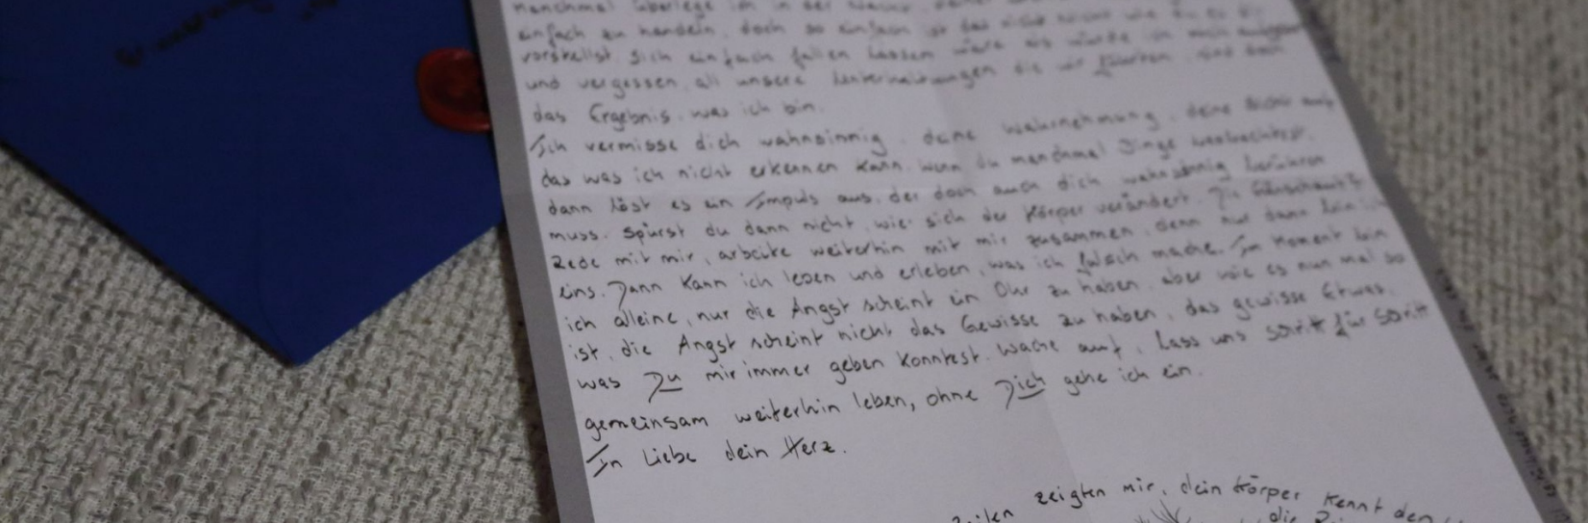 Manchmal überlege ich in der
einfach zu handeln, doch so einfach ist das nicht
vorstellst. Sich einfach fallen lassen wäre als würde ich mich
und vergessen, all unsere Unterhaltungen die wir führten, sind
das Ergebnis, was ich bin.
Ich vermisse dich wahnsinnig, deine Wahrnehmung, deine Sicht auf
das was ich nicht erkennen kann. Wenn du manchmal Dinge beobachtest,
dann löst es ein Impuls aus, der doch auch dich wahnsinnig berühren
muss. Spürst du dann nicht, wie sich der Körper verändert. Die Gänsehaut?
Rede mit mir, arbeite weiterhin mit mir zusammen, denn nur dann
eins. Dann kann ich lesen und erleben, was ich falsch mache. Im Moment bin
ich alleine, nur die Angst scheint ein Ohr zu haben, aber wie es nun mal so
ist, die Angst scheint nicht das Gewisse zu haben, das gewisse Etwas.
was Du mir immer geben konntest. Wache auf, lass uns Schritt für Schritt
gemeinsam weiterhin leben, ohne Dich gehe ich ein.
In Liebe dein Herz.
zeigten mir, dein Körper kennt den
die